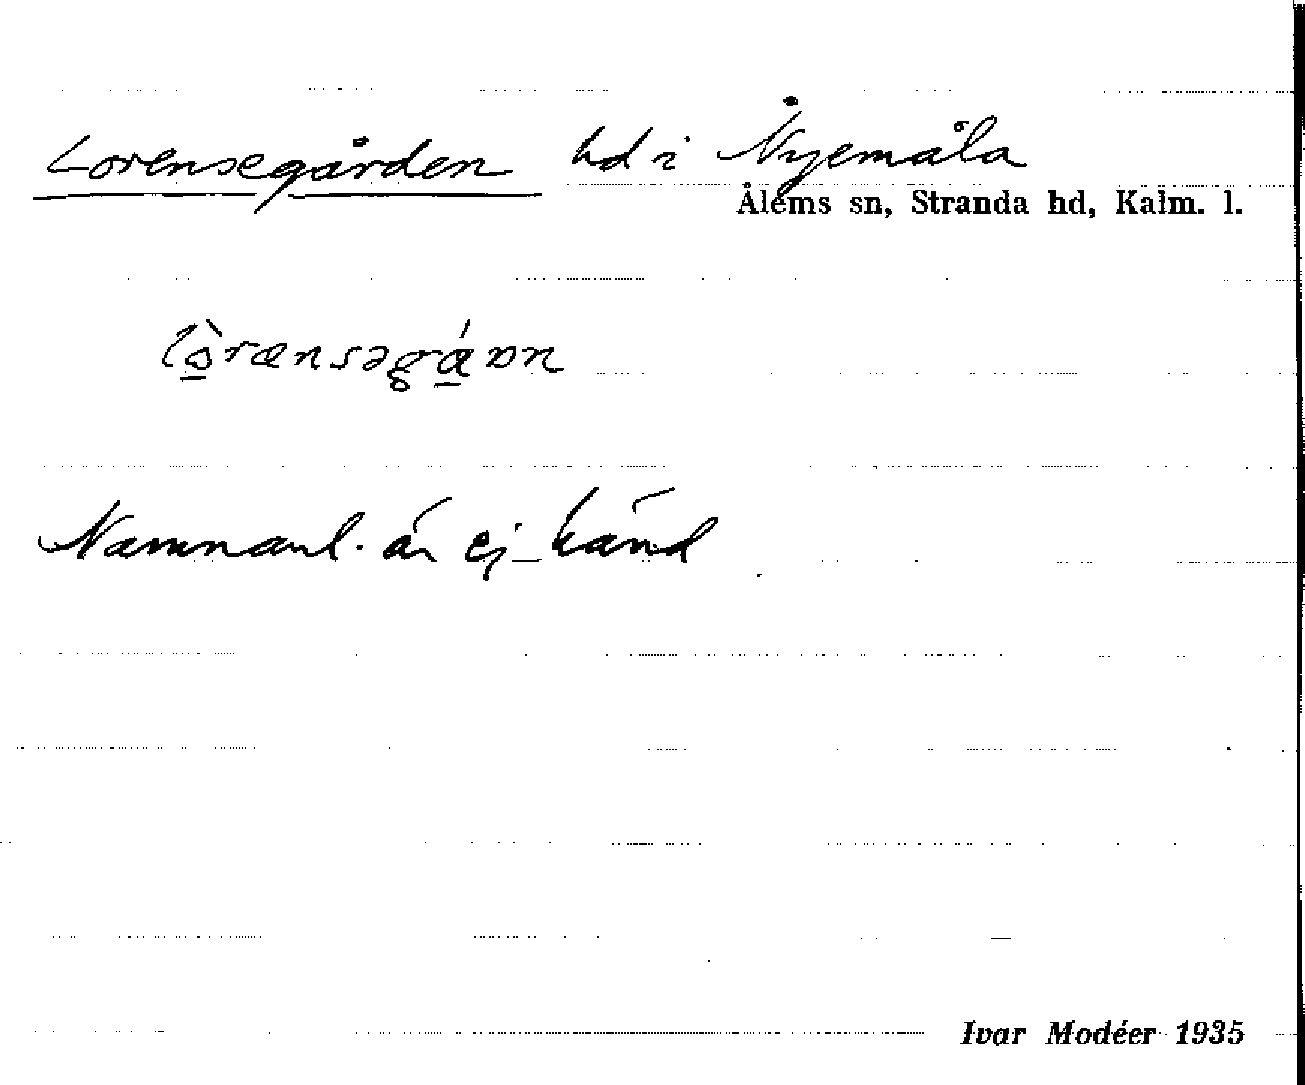 Lorensegården hd i Nyemåla
Ålems sn, Stranda hd, Kalm. l.
lɔ̠̀rænsəgá̠ɒn
Namnanl. är ej känd
Ivar Modéer 1935